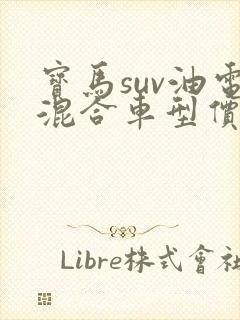 寶馬suv油電
混合車型價
Libre株式會社